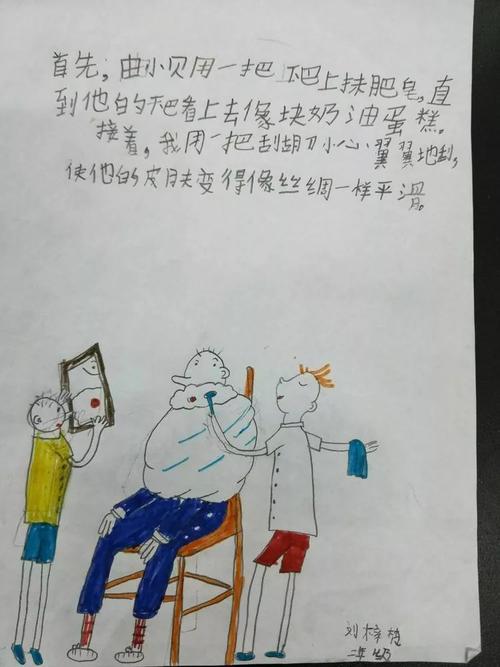 首先，由小贝用一把 下巴上抹肥皂，直
到他的下巴看上去像块奶油蛋糕。
接着，我用一把刮胡刀小心翼翼地刮，
使他的皮肤变得像丝绸一样平滑。
刘梓
二年级